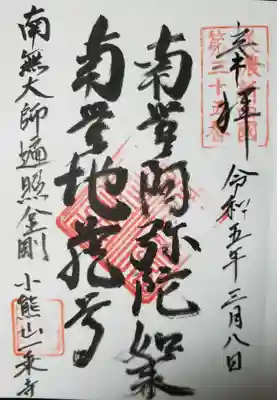 奉拝
第三十五番
令和五年三月八日
南無阿弥陀如来
南無地蔵尊
南無大師遍照金剛
小熊山一乗寺